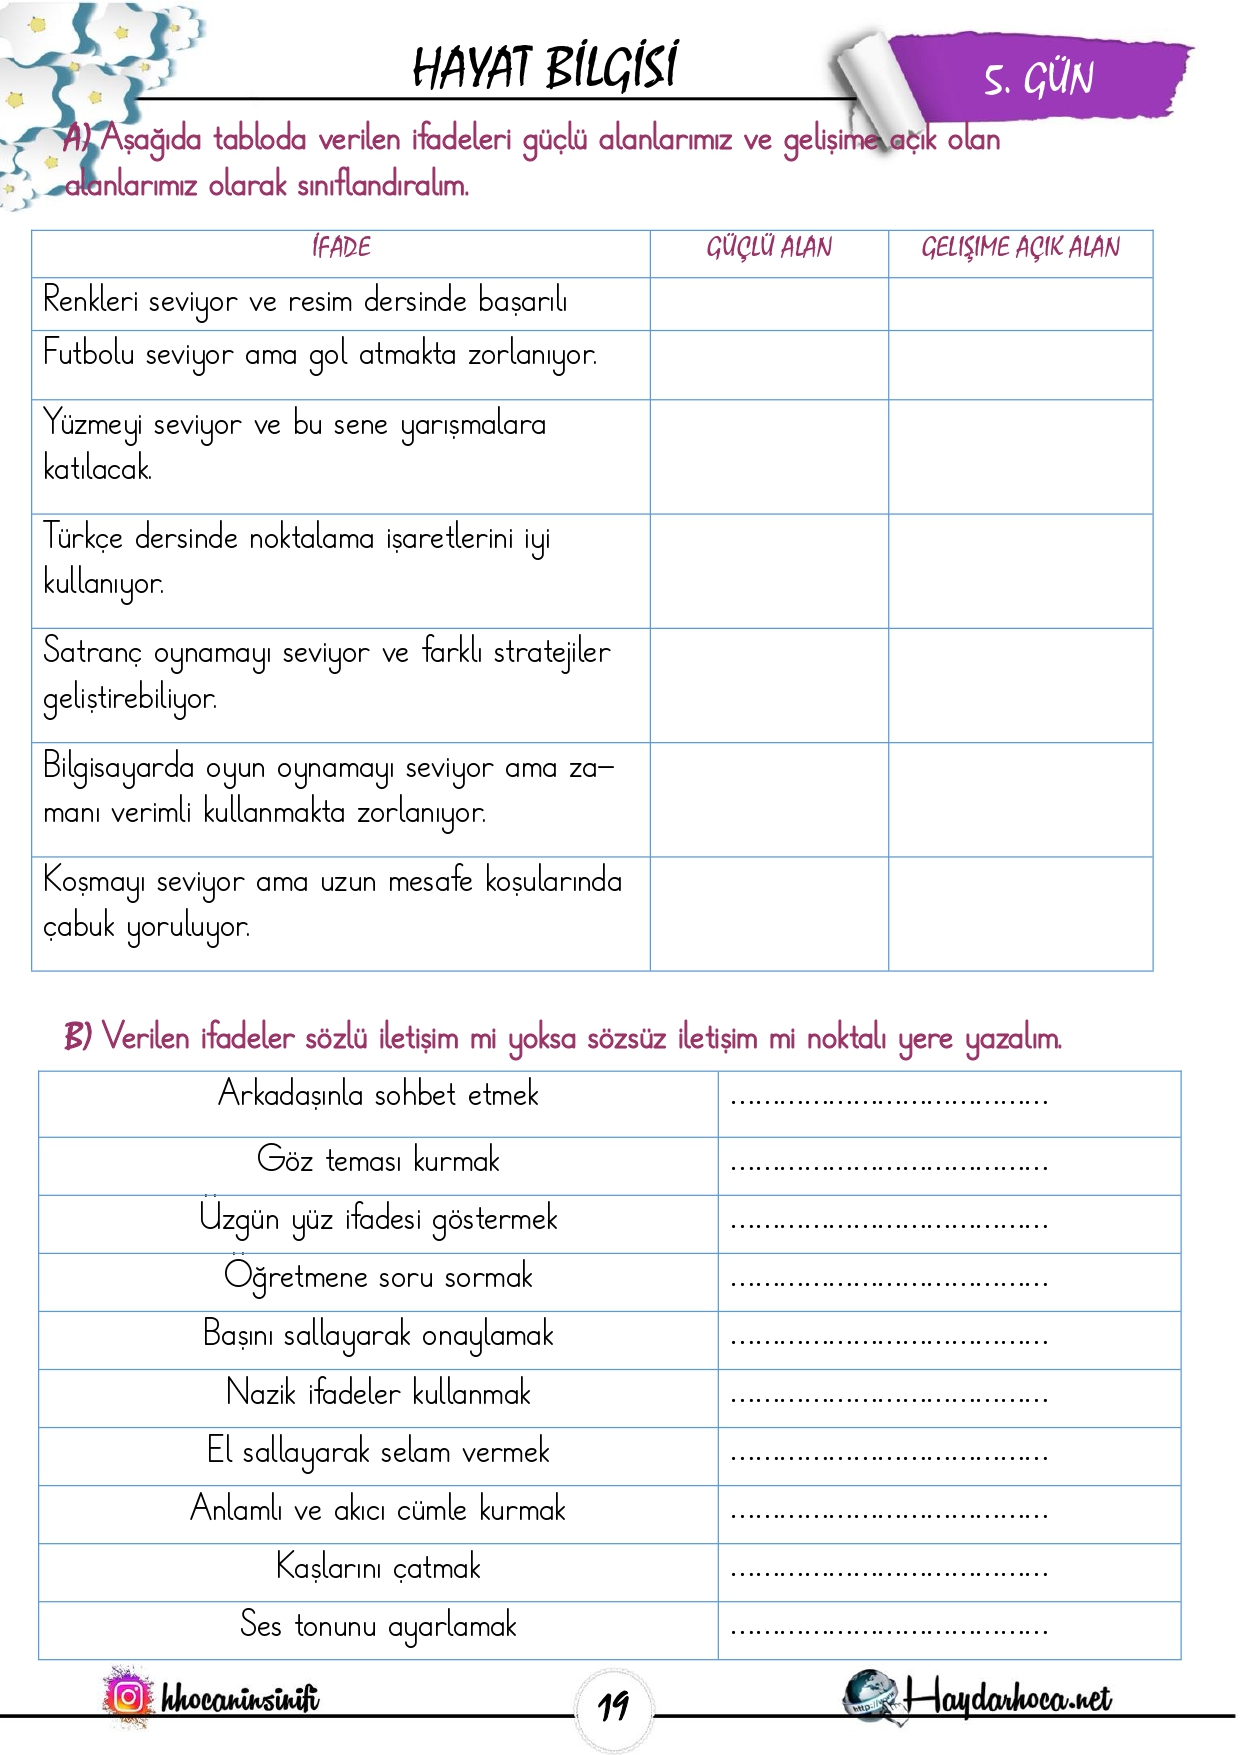 HAYAT BİLGİSİ
5. GÜN
A) Aşağıda tabloda verilen ifadeleri güçlü alanlarımız ve gelişime açık olan
alanlarımız olarak sınıflandıralım.
İFADE GÜÇLÜ ALAN GELIŞIME AÇIK ALAN
Renkleri seviyor ve resim dersinde başarılı
Futbolu seviyor ama gol atmakta zorlanıyor.
Yüzmeyi seviyor ve bu sene yarışmalara
katılacak.
Türkçe dersinde noktalama işaretlerini iyi
kullanıyor.
Satranç oynamayı seviyor ve farklı stratejiler
geliştirebiliyor.
Bilgisayarda oyun oynamayı seviyor ama za-
manı verimli kullanmakta zorlanıyor.
Koşmayı seviyor ama uzun mesafe koşularında
çabuk yoruluyor.
B) Verilen ifadeler sözlü iletişim mi yoksa sözsüz iletişim mi noktalı yere yazalım.
Arkadaşınla sohbet etmek ……………………………………
Göz teması kurmak ……………………………………
Üzgün yüz ifadesi göstermek ……………………………………
Öğretmene soru sormak ……………………………………
Başını sallayarak onaylamak ……………………………………
Nazik ifadeler kullanmak ……………………………………
El sallayarak selam vermek ……………………………………
Anlamlı ve akıcı cümle kurmak ……………………………………
Kaşlarını çatmak ……………………………………
Ses tonunu ayarlamak ……………………………………
hhocaninsinifi
19
http://www
Haydarhoca.net